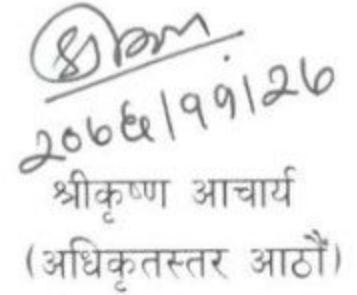 २०७६।११।२७
श्रीकृष्ण आचार्य
(अधिकृतस्तर आठौं)